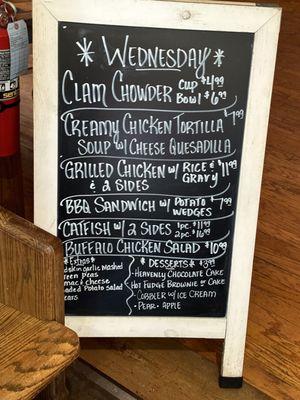 * WEDNESDAY *
CLAM CHOWDER CUP $4.99
BOWL $6.99
CREAMY CHICKEN TORTILLA $7.99
SOUP W/ CHEESE QUESADILLA
GRILLED CHICKEN W/ RICE & $11.99
& 2 SIDES GRAVY
BBQ SANDWICH W/ POTATO $7.99
WEDGES
CATFISH W/ 2 SIDES 1pc. $11.99
2pc. $16.99
BUFFALO CHICKEN SALAD $10.99
* Extras *
dskin garlic mashed
reen peas
mac & cheese
oaded Potato salad
ears
* DESSERTS * $3.99
- HEAVENLY CHOCOLATE CAKE
HOT FUDGE BROWNIE or CAKE
COBBLER W/ ICE CREAM
- PEAR - APPLE